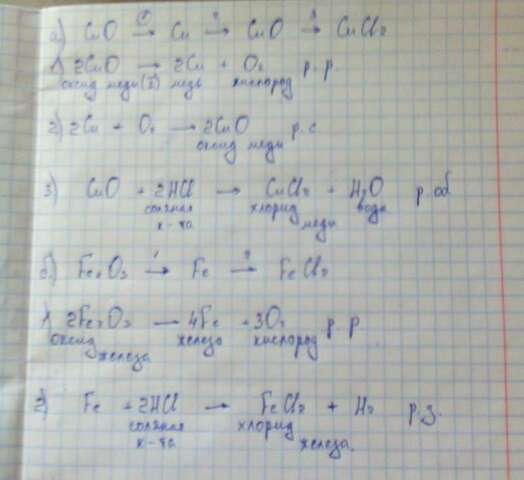 а) CuO →¹ Cu →² CuO →³ CuCl₂
1. 2CuO → 2Cu + O₂ р. р.
оксид меди(II) медь кислород
2) 2Cu + O₂ → 2CuO р. с
оксид меди
3) CuO + 2HCl → CuCl₂ + H₂O р. об
соляная хлорид вода
к-та меди
б) Fe₂O₃ →¹ Fe →² FeCl₂
1. 2Fe₂O₃ — 4Fe + 3O₂ р. р
оксид железо кислород
железа
2) Fe + 2HCl → FeCl₂ + H₂ р.з.
соляная хлорид
к-та железа.